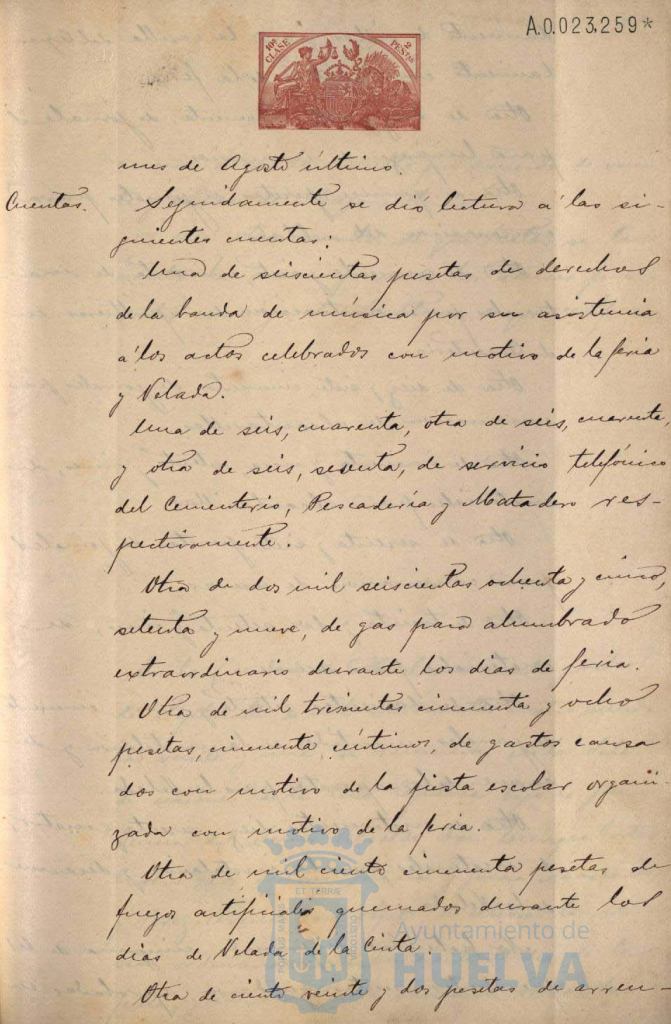 A.0.023,259*
10ª CLASE
2 PESTAS
mes de Agosto último.
Cuentas. Seguidamente se dió lectura á las si-
guientes cuentas:
Una de seiscientas pesetas de derechos
de la banda de música por su asistencia
á los actos celebrados con motivo de la feria
y Velada.
Una de seis, cuarenta, otra de seis, cuarenta,
y otra de seis, setenta, de servicio telefónico
del Cementerio, Pescadería y Matadero res-
pectivamente.
Otra de dos mil seiscientas ochenta y cinco,
setenta y nueve, de gas para alumbrado
extraordinario durante los dias de feria.
Otra de mil trescientas cincuenta y ocho
pesetas, cincuenta céntimos, de gastos causa
dos con motivo de la fiesta escolar organi-
zada con motivo de la feria.
Otra de mil ciento cincuenta pesetas de
fuegos artificiales quemados durante los
dias de Velada de la Cinta.
Otra de ciento veinte y dos pesetas de arren-
ET TERRÆ
Ayuntamiento de
HUELVA